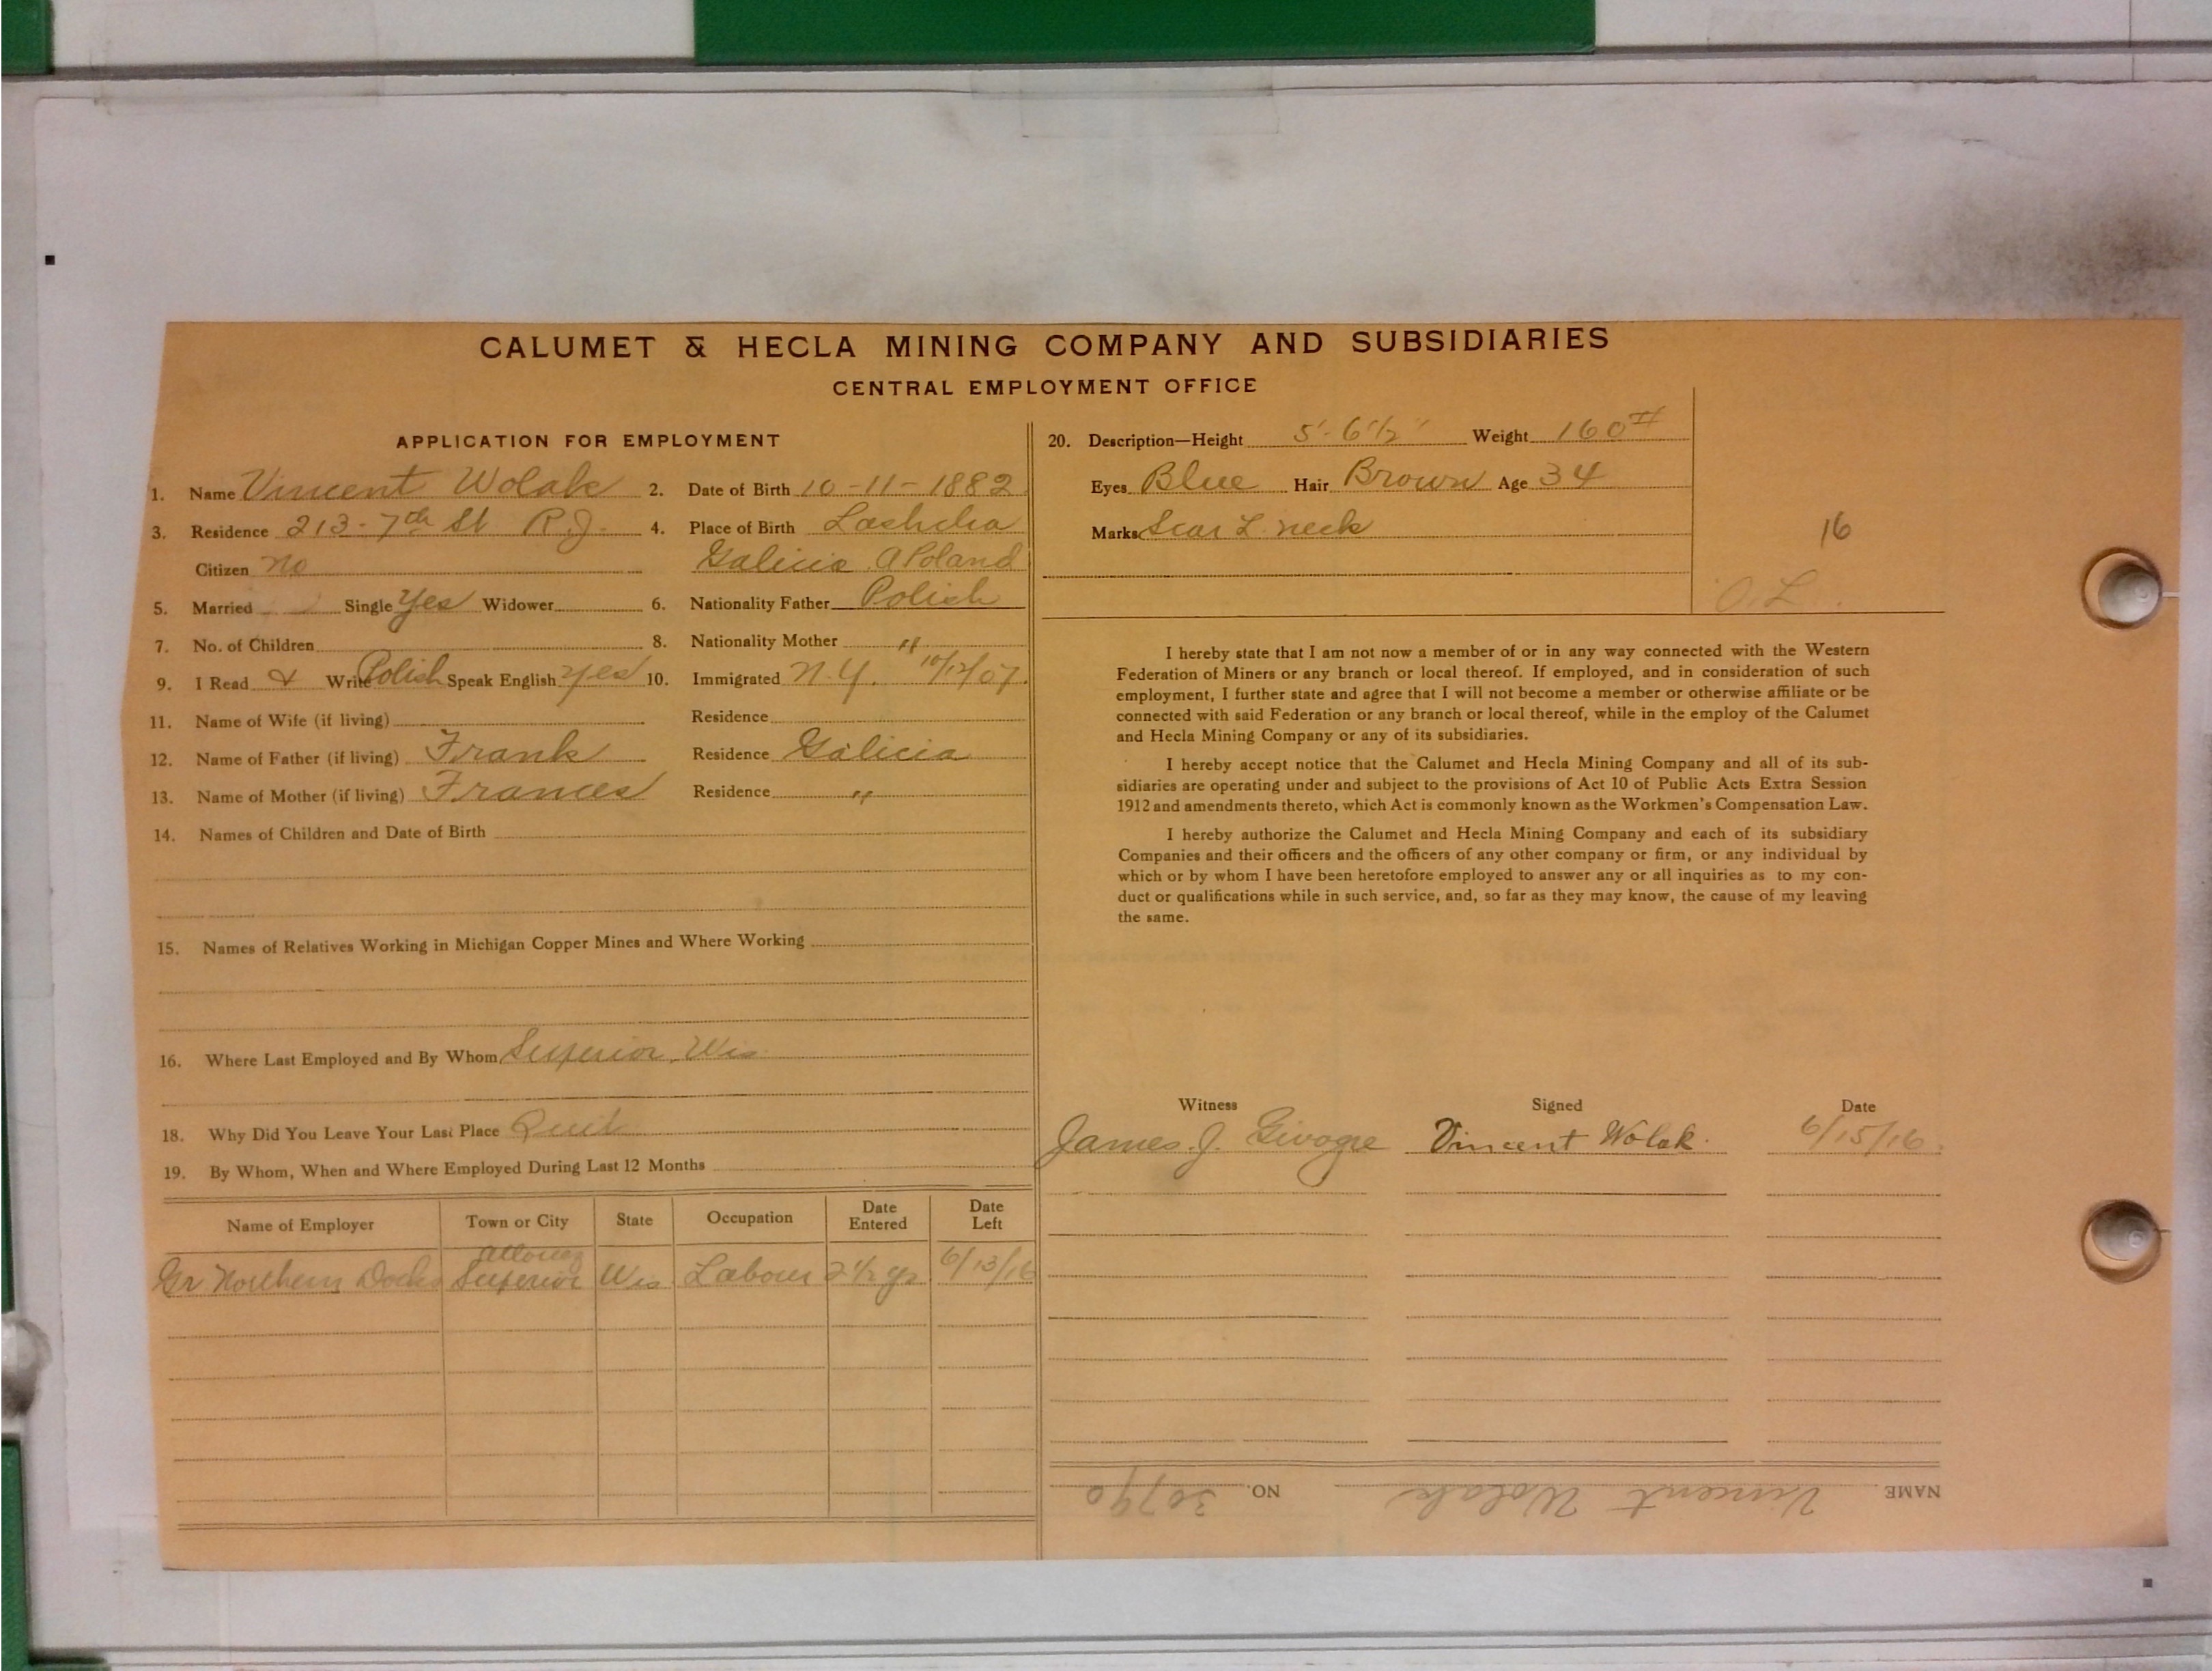 CALUMET & HECLA MINING COMPANY AND SUBSIDIARIES
CENTRAL EMPLOYMENT OFFICE
APPLICATION FOR EMPLOYMENT
1. Name Vincent Wolak 2. Date of Birth 10-11-1882
3. Residence 213-7th St R.J. 4. Place of Birth
Citizen no Galicia A Poland
5. Married Single Yes Widower 6. Nationality Father Polish
7. No. of Children 8. Nationality Mother "
9. I Read & Write Polish Speak English yes 10. Immigrated N.Y. 10/12/07.
11. Name of Wife (if living) Residence
12. Name of Father (if living) Frank Residence Galicia
13. Name of Mother (if living) Frances Residence "
14. Names of Children and Date of Birth
15. Names of Relatives Working in Michigan Copper Mines and Where Working
16. Where Last Employed and By Whom Superior, Wis
18. Why Did You Leave Your Last Place Quit
19. By Whom, When and Where Employed During Last 12 Months
Name of Employer Town or City State Occupation Date Entered Date Left
Allouez
Gr Northern Docks Superior Wis Labour 2 1/2 yr 6/13/16
20. Description—Height 5'-6 1/2" Weight 160#
Eyes Blue Hair Brown Age 34
Marks Scar L. neck
16
O.L.
I hereby state that I am not now a member of or in any way connected with the Western
Federation of Miners or any branch or local thereof. If employed, and in consideration of such
employment, I further state and agree that I will not become a member or otherwise affiliate or be
connected with said Federation or any branch or local thereof, while in the employ of the Calumet
and Hecla Mining Company or any of its subsidiaries.
I hereby accept notice that the Calumet and Hecla Mining Company and all of its sub-
sidiaries are operating under and subject to the provisions of Act 10 of Public Acts Extra Session
1912 and amendments thereto, which Act is commonly known as the Workmen's Compensation Law.
I hereby authorize the Calumet and Hecla Mining Company and each of its subsidiary
Companies and their officers and the officers of any other company or firm, or any individual by
which or by whom I have been heretofore employed to answer any or all inquiries as to my con-
duct or qualifications while in such service, and, so far as they may know, the cause of my leaving
the same.
Witness Signed Date
James. J. Vincent Wolak. 6/15/16.
NAME Vincent Wolak NO. 30790